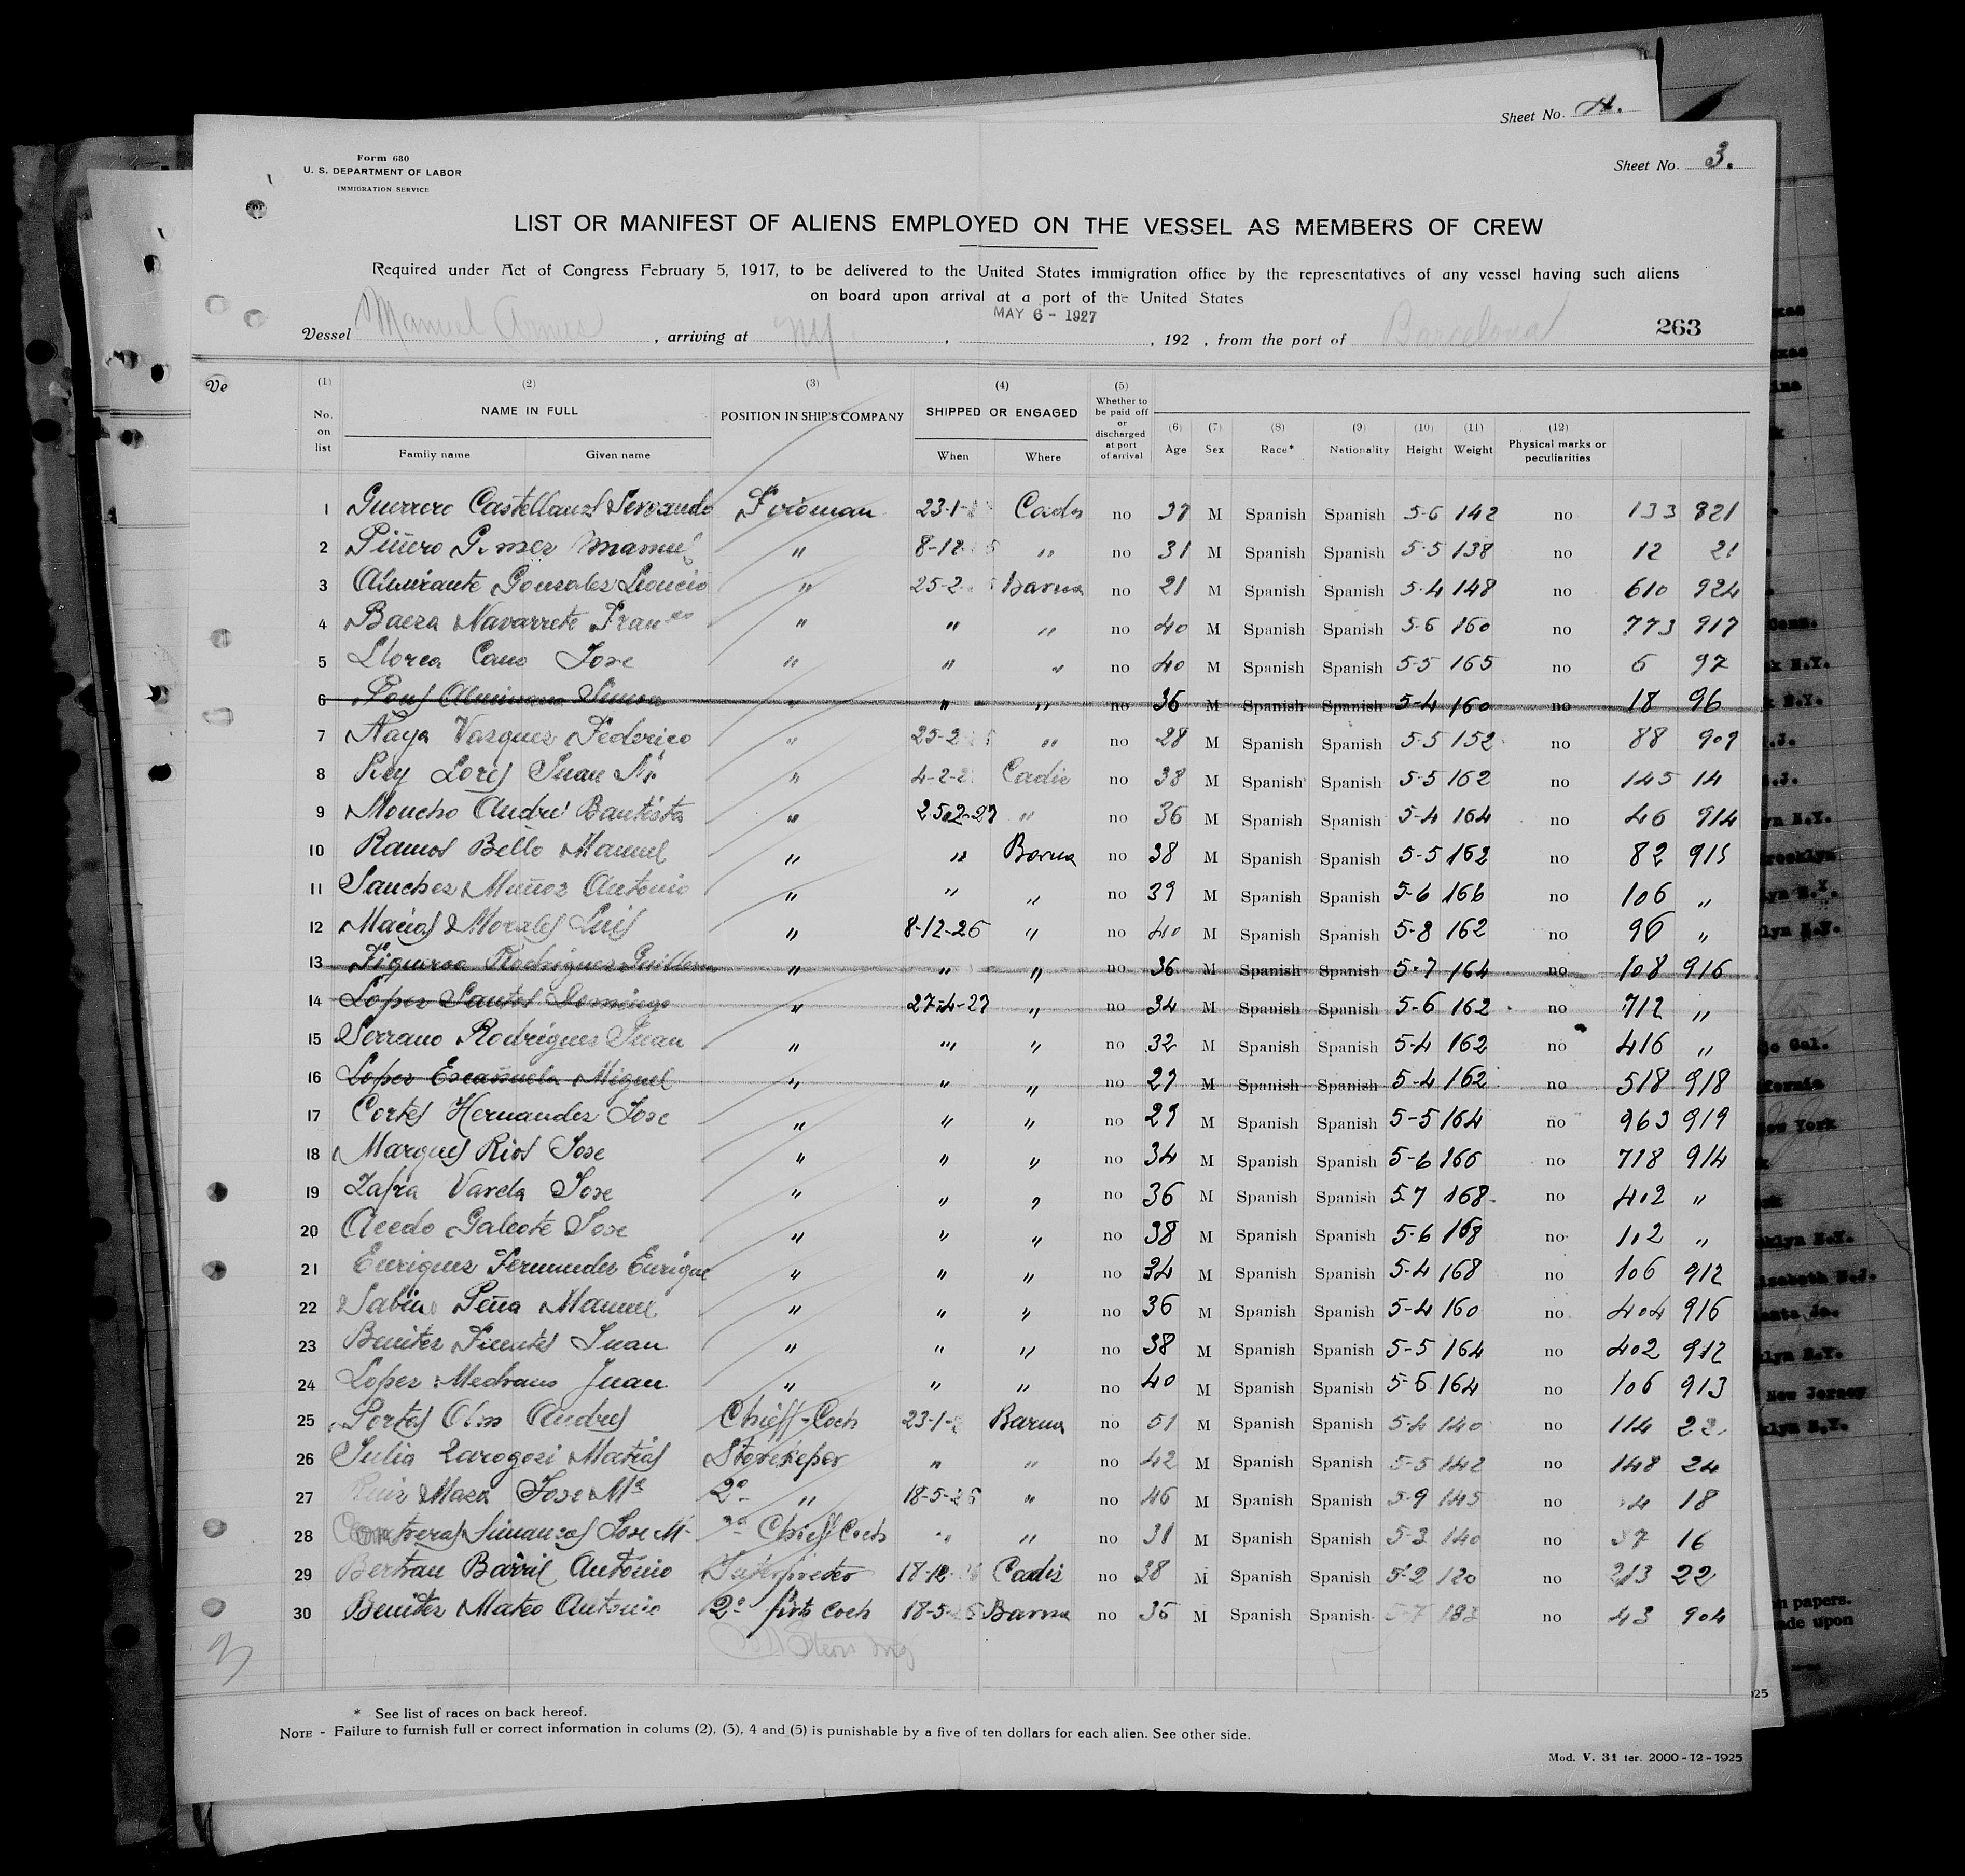 Sheet No. 4.
Form 680
U. S. DEPARTMENT OF LABOR
IMMIGRATION SERVICE
Sheet No. 3.
LIST OR MANIFEST OF ALIENS EMPLOYED ON THE VESSEL AS MEMBERS OF CREW
Required under Act of Congress February 5, 1917, to be delivered to the United States immigration office by the representatives of any vessel having such aliens
on board upon arrival at a port of the United States
MAY 6 - 1927
Vessel Manuel Arnus , arriving at NY. , , 192 , from the port of Barcelona 263
Ve
(1) No. on list
(2) NAME IN FULL Family name Given name
(3) POSITION IN SHIP'S COMPANY
(4) SHIPPED OR ENGAGED When Where
(5) Whether to be paid off or discharged at port of arrival
(6) Age (7) Sex (8) Race* (9) Nationality (10) Height (11) Weight (12) Physical marks or peculiarities
1 Guerrero Castellanos Servando Fireman 23-1- no 37 M Spanish Spanish 5-6 142 no 133 821
2 Piñero Manuel " 8-12 " no 31 M Spanish Spanish 5-5 138 no 12 21
3 Almirante Gonzalez Leoncio " 25-2 Barna no 21 M Spanish Spanish 5-4 148 no 610 924
4 Baeza Navarrete Fran co " " " no 40 M Spanish Spanish 5-6 160 no 773 917
5 Llorca Cano Jose " " " no 40 M Spanish Spanish 5-5 165 no 6 97
6 Pons Simon " " " no 36 M Spanish Spanish 5-4 160 no 18 96
7 Naya Vazquez Federico " 25-2 " no 28 M Spanish Spanish 5-5 152 no 88 909
8 Rey Juan " 4-2-2 Cadiz no 38 M Spanish Spanish 5-5 162 no 145 14
9 Moncho Andrés Bautista " 25-2-27 " no 36 M Spanish Spanish 5-4 164 no 46 914
10 Ramos Bello Manuel " " Barna no 38 M Spanish Spanish 5-5 162 no 82 915
11 Sanchez Muñoz Antonio " " " no 39 M Spanish Spanish 5-6 166 no 106 "
12 Macias Morales Luis " 8-12-26 " no 40 M Spanish Spanish 5-8 162 no 96 "
13 Figueroa Rodriguez Guillermo " " " no 36 M Spanish Spanish 5-7 164 no 108 916
14 Lopez Santos Domingo " 27-4-27 " no 34 M Spanish Spanish 5-6 162 no 712 "
15 Serrano Rodriguez Juan " " " no 32 M Spanish Spanish 5-4 162 no 416 "
16 Lopez Escañuela Miguel " " " no 27 M Spanish Spanish 5-4 162 no 518 918
17 Cortes Hernandez Jose " " " no 29 M Spanish Spanish 5-5 164 no 963 919
18 Marques Rios Jose " " " no 34 M Spanish Spanish 5-6 166 no 718 914
19 Zafra Varela Jose " " " no 36 M Spanish Spanish 5-7 168 no 402 "
20 Acedo Galeote Jose " " " no 38 M Spanish Spanish 5-6 168 no 102 "
21 Enriquez Fernandez Enrique " " " no 34 M Spanish Spanish 5-4 168 no 106 912
22 Sabino Peña Manuel " " " no 36 M Spanish Spanish 5-4 160 no 404 916
23 Benitez Fuentes Juan " " " no 38 M Spanish Spanish 5-5 164 no 402 912
24 Lopez Medrano Juan " " " no 40 M Spanish Spanish 5-6 164 no 106 913
25 Portas Andres Chieff-Coch 23-1- Barna no 51 M Spanish Spanish 5-4 140 no 114 22
26 Julia Zarogozi Matias Storekeper " " no 42 M Spanish Spanish 5-5 142 no 148 24
27 Ruiz Maza Jose Mª 2º " 18-5-26 " no 46 M Spanish Spanish 5-9 145 no 4 18
28 Contreras Simanzas Jose M. Chieff Coch " " no 31 M Spanish Spanish 5-3 140 no 37 16
29 Bertran Barril Antonio Interpreter 18-12 Cadiz no 38 M Spanish Spanish 5-2 120 no 213 22
30 Benitez Mateo Antonio 2º firts Coch 18-5-26 Barna no 35 M Spanish Spanish 5-7 183 no 43 904
* See list of races on back hereof.
NOTE - Failure to furnish full or correct information in colums (2), (3), 4 and (5) is punishable by a five of ten dollars for each alien. See other side.
Mod. V. 31 ter. 2000-12-1925